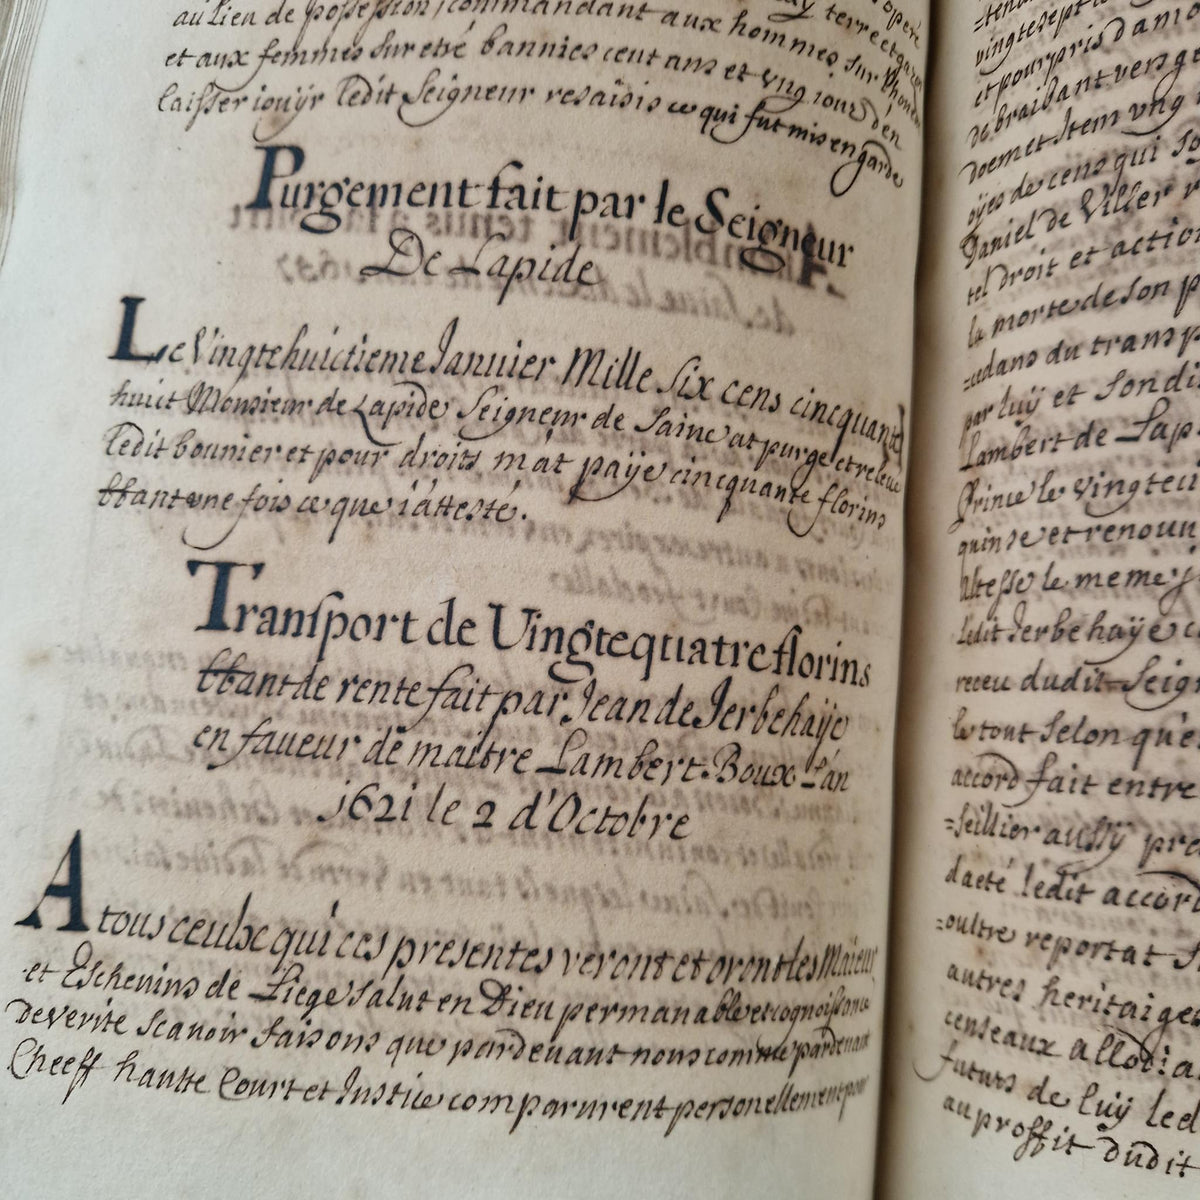 au lieu de possession, commandant aux hommes, sur
et aux femmes sur estré bannies cent ans et ung jour d'en
laisser iouÿr ledit Seigneur resaisis ce qui fut mis en garde
Purgement fait par le Seigneur
De Lapide
Le Vingtehuictieme Januier Mille six cens cincquante
huict Monsieur de Lapide Seigneur de Saine at purgé et releué
ledit bounier et pour droits m'at paÿe cincquante florins
bbant une fois ce que i'atteste.
Transport de Vingtequatre florins
bbant de rente fait par Jean de Jerbehaÿe
en faueur de maitre Lambert Boux L'an
1621 le 2 d'Octobre
A tous ceulx qui ces presentes veront et oront les Maieur
et Escheuins de Liege salut en Dieu permanable et cognoissance
De verite scauoir faisons que pardeuant nous comme pardeuant
Cheeff haulte Court et Justice comparurent personellement pour
vingtesept
et pourpris
de braibant vers
doem et Item ung
oÿes de cens qui
Daniel de Viller
tel droit et action
la morte de son
=cedans du transp
par luÿ et son di
Lambert de Lap
Prince le vingte
quinse et renoun
Altesse le meme
ledit Jerbehaÿe
receu dudit Seig
le tout selon que
accord fait entre
=seillier aussÿ pre
dacté ledit accord
=oultre reportat
autres heritaiges
censeaux allodia
futurs de luÿ led
au proffit dudit